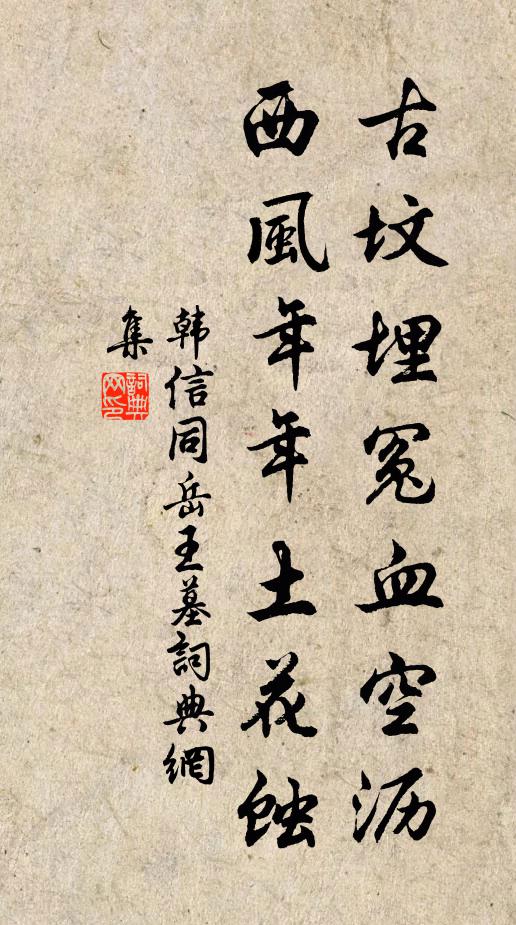 古坟埋冤血空沥
西風年年土花蝕
韩信同岳王墓詞典網
集
詞典网印